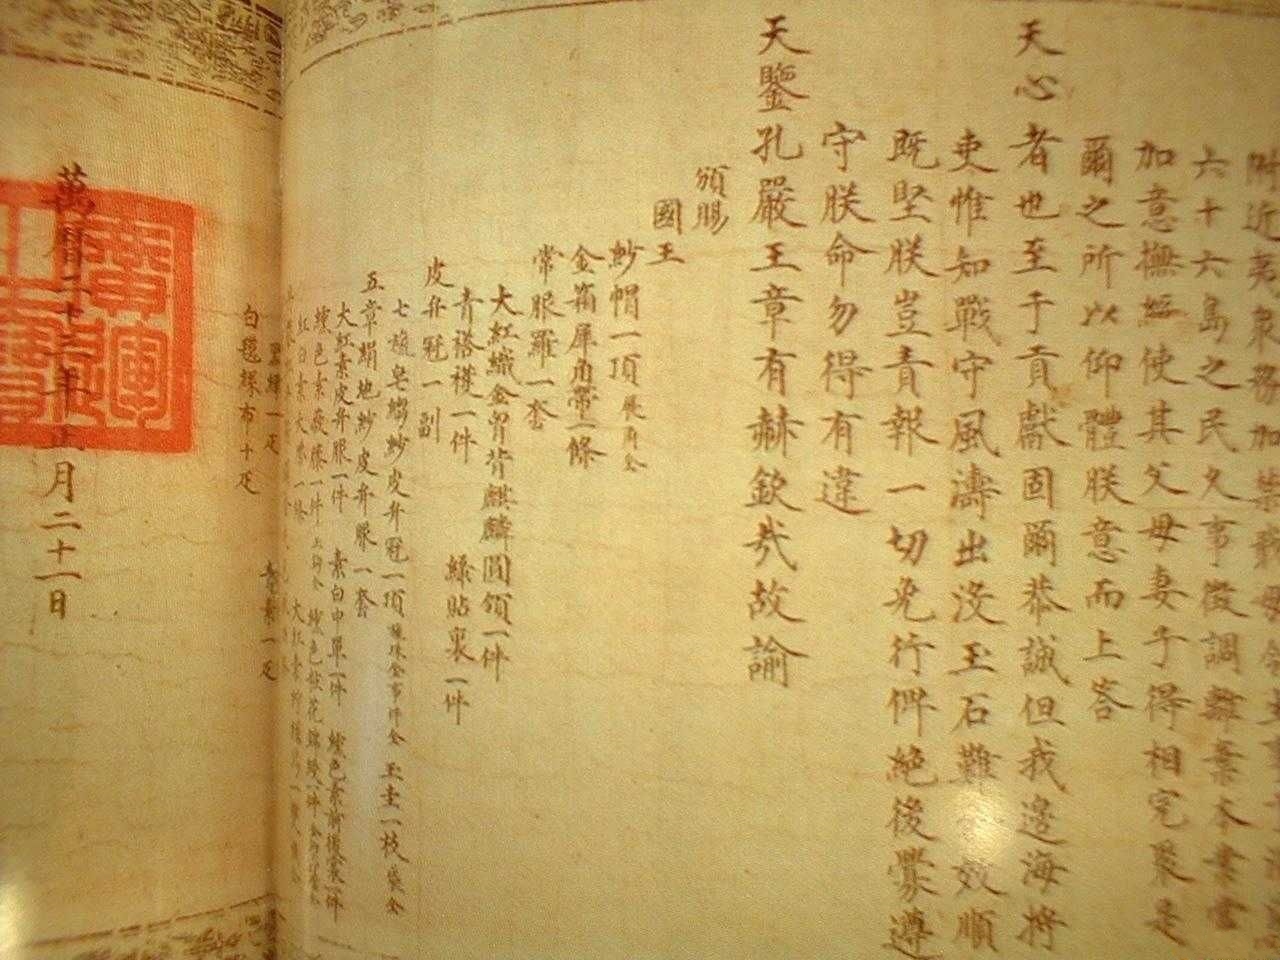 附近夷衆務加禁
六十六島之民久事徵調離棄本業當
加意撫綏使其父母妻子得相完聚是
爾之所以仰體朕意而上答
天心者也至于貢獻固爾恭誠但我邊海將
吏惟知戰守風濤出沒玉石難 效順
既堅朕豈責報一切免行俾絕後釁遵
守朕命勿得有違
天鑒孔嚴王章有赫欽哉故諭
頒賜
國王
紗帽一頂展角全
金箱犀角帶一條
常服羅一套
大紅織金胷背麒麟圓領一件
青褡襻一件 綠貼裏一件
皮弁冠一副
七旒皂縐紗皮弁冠一頂旒珠金事件全 玉圭一枝袋全
五章絹地紗皮弁服一套
大紅素皮弁服一件 素白中單一件 纁色素前後裳一件
纁色素蔽膝一件上鈎全 纁色粧花錦綬一件
紅白素大帶一條 大紅素紵絲舄一雙
青素一疋
白氁絲布十疋
萬曆二十三年正月二十一日